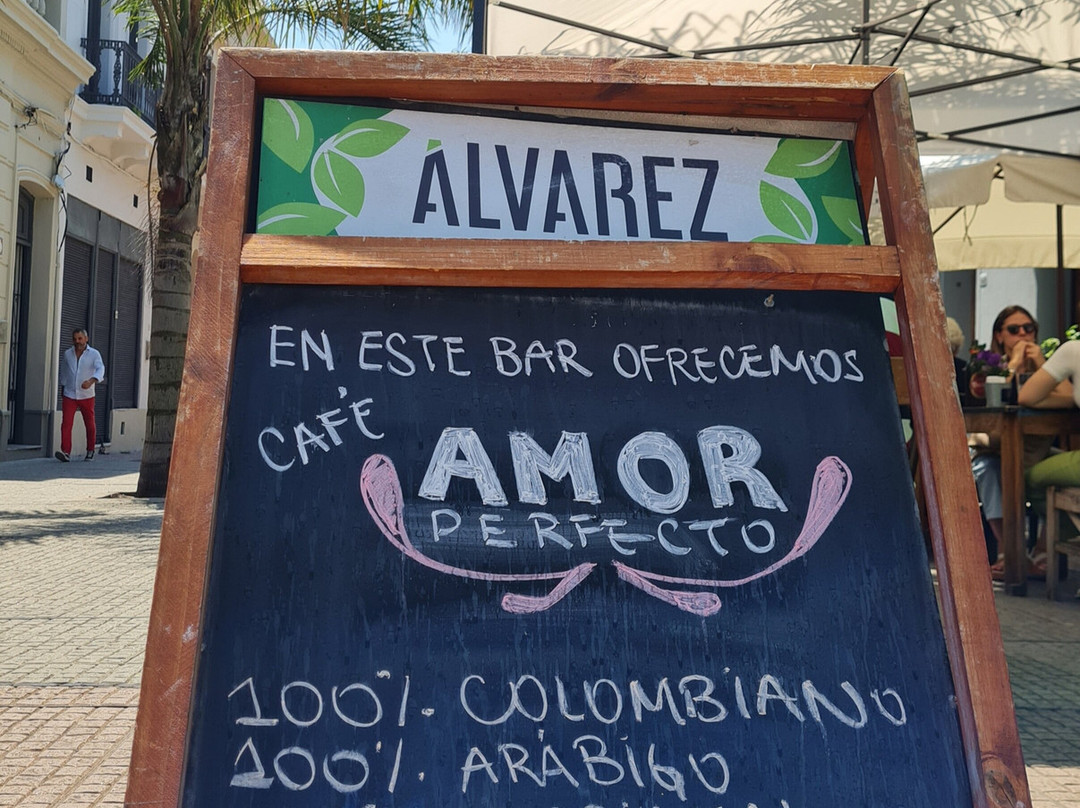 ÁLVAREZ
EN ESTE BAR OFRECEMOS
CAFÉ
AMOR
PERFECTO
100% COLOMBIANO
100% ARÁBIGO